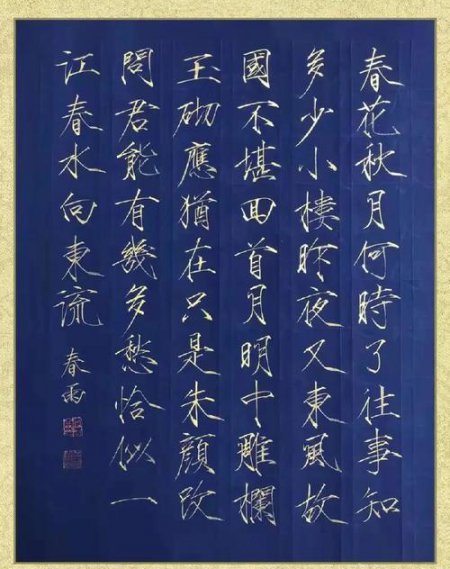 春花秋月何時了往事知
多少小樓昨夜又東風故
國不堪回首月明中雕欄
玉砌應猶在只是朱顏改
問君能有幾多愁恰似一
江春水向東流
春雨